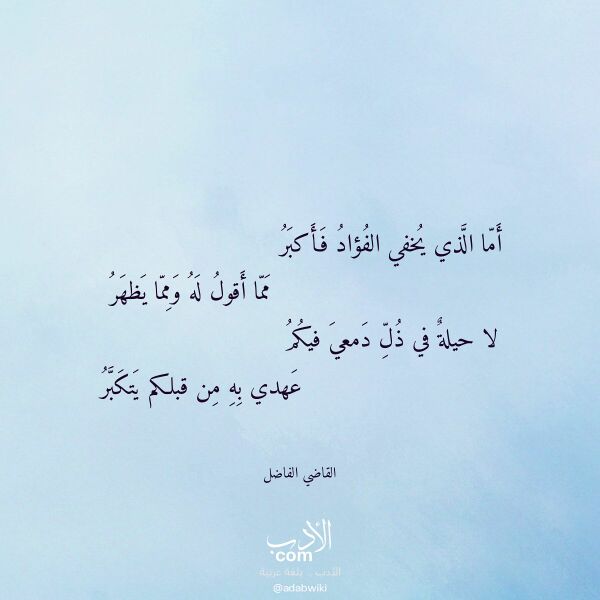 أَمّا الَّذي يُخفي الفُؤادُ فَأَكبَرُ
مَمّا أَقولُ لَهُ وَمِمّا يَظهَرُ
لا حيلةٌ في ذُلِّ دَمعيَ فيكُمُ
عَهدي بِهِ مِن قبلكم يَتكَبَّرُ
القاضي الفاضل
الأدب
com
الأدب .. بلغة عربية
@adabwiki